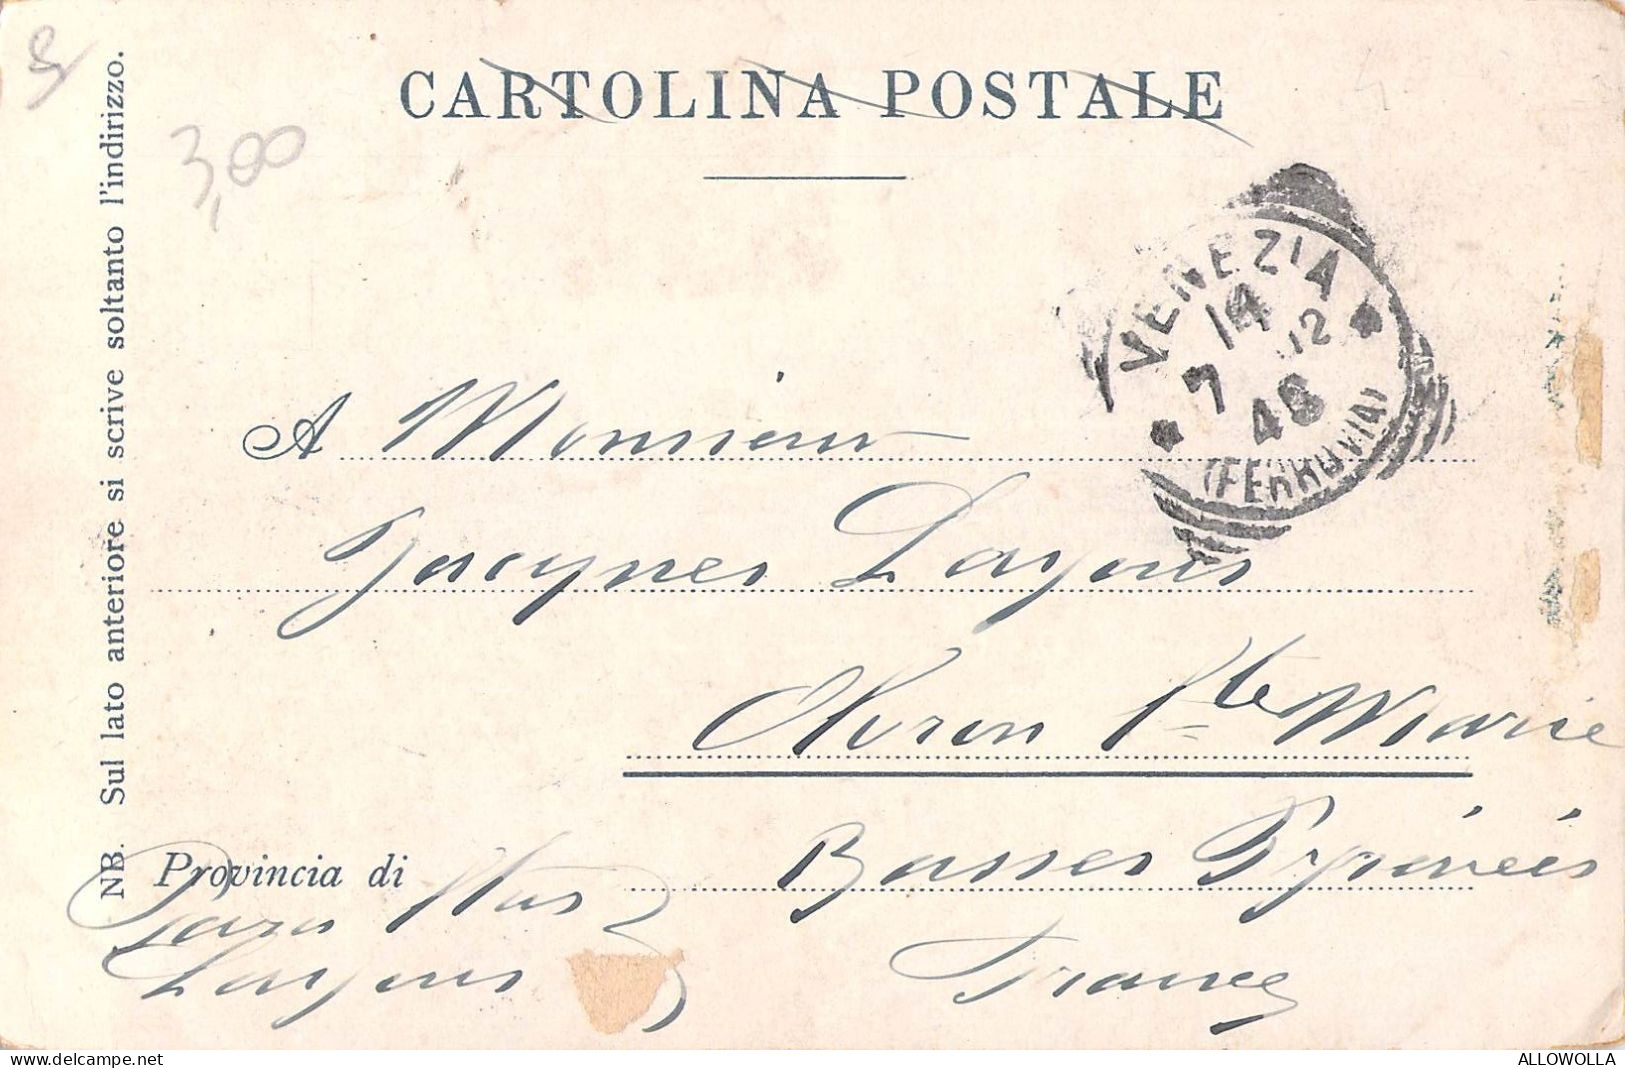 CARTOLINA POSTALE
NB. Sul lato anteriore si scrive soltanto l'indirizzo.
3,00
VENEZIA
14
7 12
(FERROVIA)
A Monsieur
Jacques Layous
Oloron Ste Marie
Provincia di Basses Pyrénées
France
Layous
ALLOWOLLA